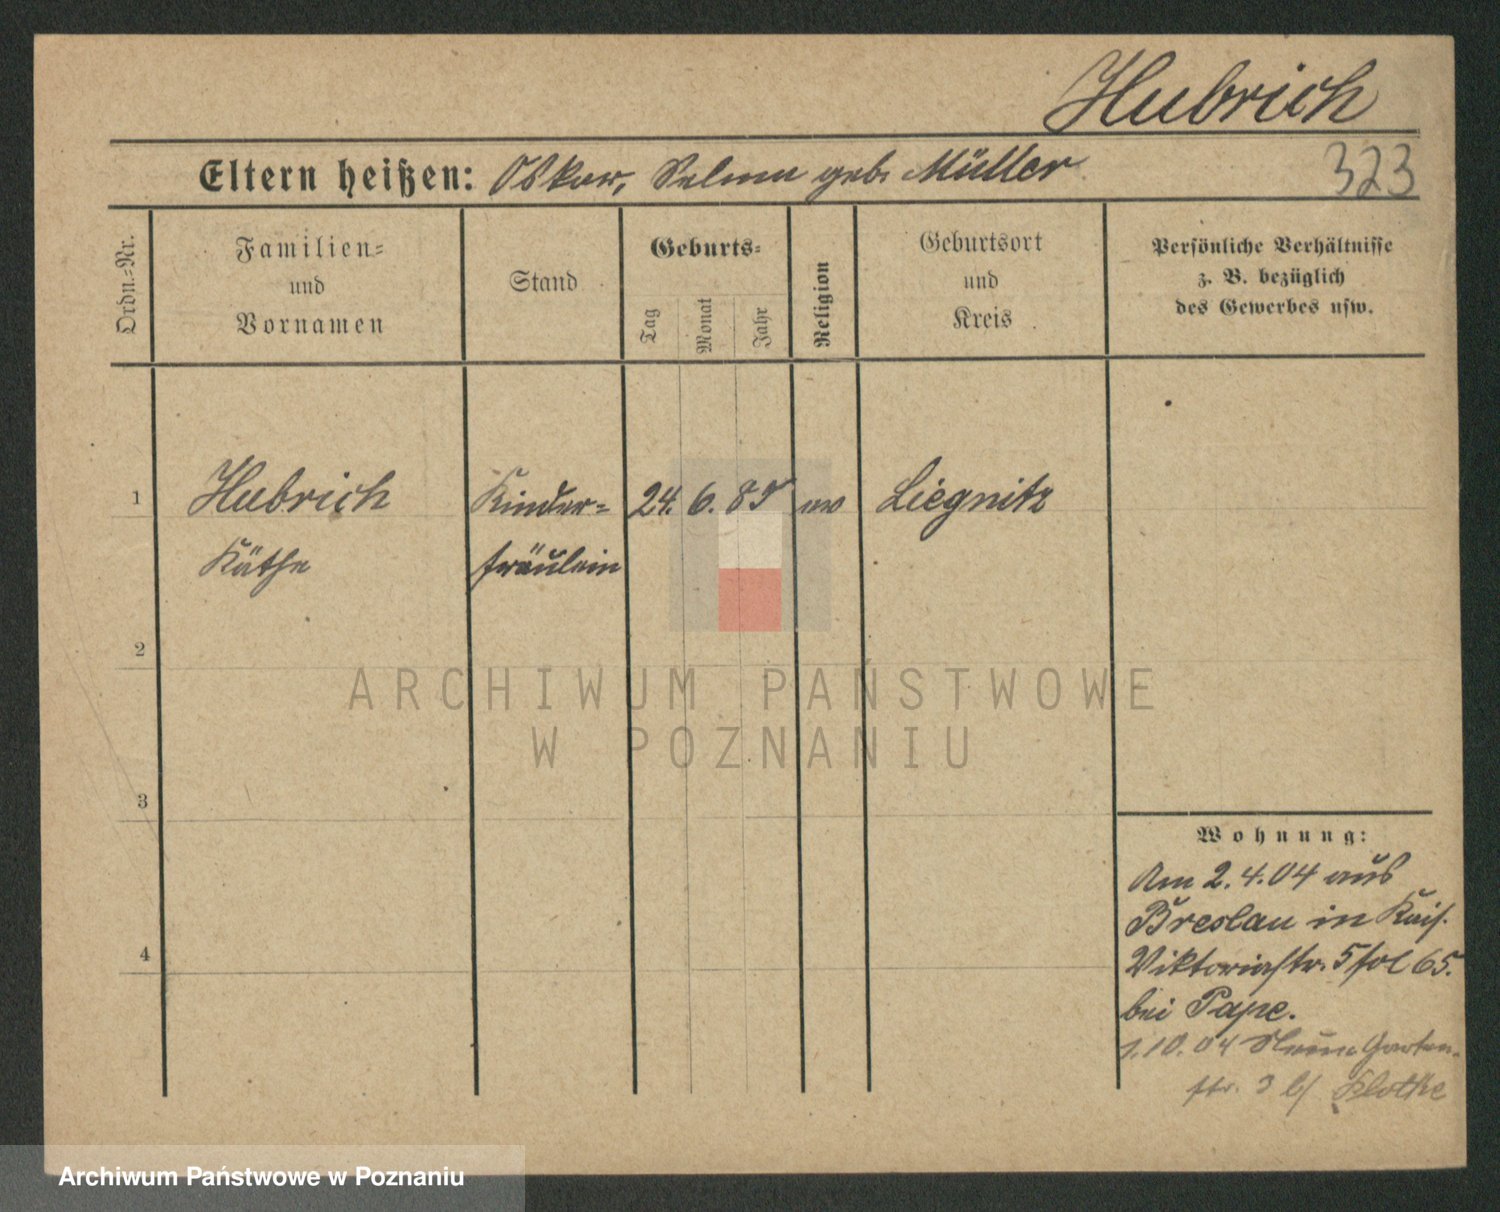 Hubrich
Eltern heißen: Oskar, Selma geb. Müller
323
Ordn.=Nr.
Familien=
und
Vornamen
Stand
Geburts=
Tag
Monat
Jahr
Religion
Geburtsort
und
Kreis
Persönliche Verhältnisse
z. B. bezüglich
des Gewerbes usw.
1 Hubrich Kinder= 24. 6. 85 ev Liegnitz
Käthe fräulein
2
3
4
Wohnung:
Am 2.4.04 aus
Breslau in Kais.
Viktoriastr. 5 fol 65.
bei Pape.
1.10.04 Neue Garten-
str. 3 b/ Klothe
ARCHIWUM PAŃSTWOWE
W POZNANIU
Archiwum Państwowe w Poznaniu